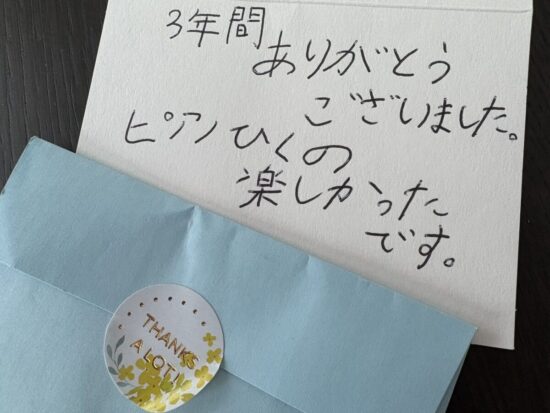 3年間
ありがとう
ございました。
ピアノひくの
楽しかった
です。
THANKS
A LOT!